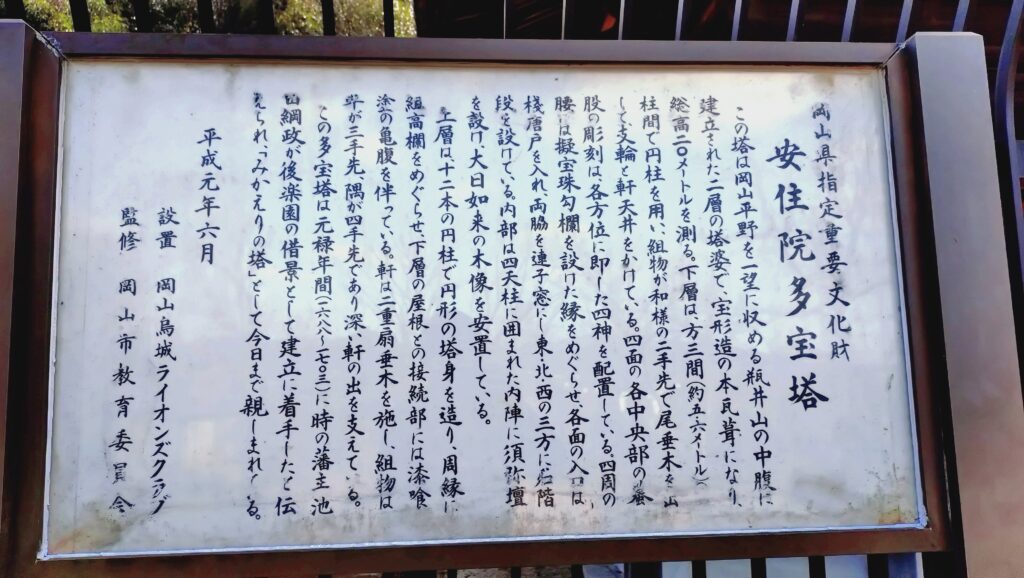 岡山県指定重要文化財
安住院多宝塔
この塔は岡山平野を一望に収める瓶井山の中腹に
建立された二層の塔婆で、宝形造の本瓦葺になり、
総高二〇メートルを測る。下層は、方三間(約五・六メートル)
柱間で円柱を用い、組物が和様の二手先で尾垂木を出
して支輪と軒天井をかけている。四面の各中央部の蟇
股の彫刻は、各方位に即した四神を配置している。四周の
腰には擬宝珠勾欄を設けた縁をめぐらせ、各面の入口は、
棧唐戸を入れ、両脇を連子窓にし、東・北・西の三方に石階
段を設けている。内部は四天柱に囲まれた内陣に須弥壇
を設け、大日如来の木像を安置している。
上層は十二本の円柱で円形の塔身を造り、周縁に
組高欄をめぐらせ、下層の屋根との接続部には漆喰
塗の亀腹を伴っている。軒は二重扇垂木を施し、組物は
平が三手先、隅が四手先であり深い軒の出を支えている。
この多宝塔は元禄年間(一六八八〜一七〇三)に時の藩主池
田綱政が後楽園の借景として建立に着手したと伝
えられ、「みかえりの塔」として今日まで親しまれている。
平成元年六月
設置 岡山烏城ライオンズクラブ
監修 岡山市教育委員会